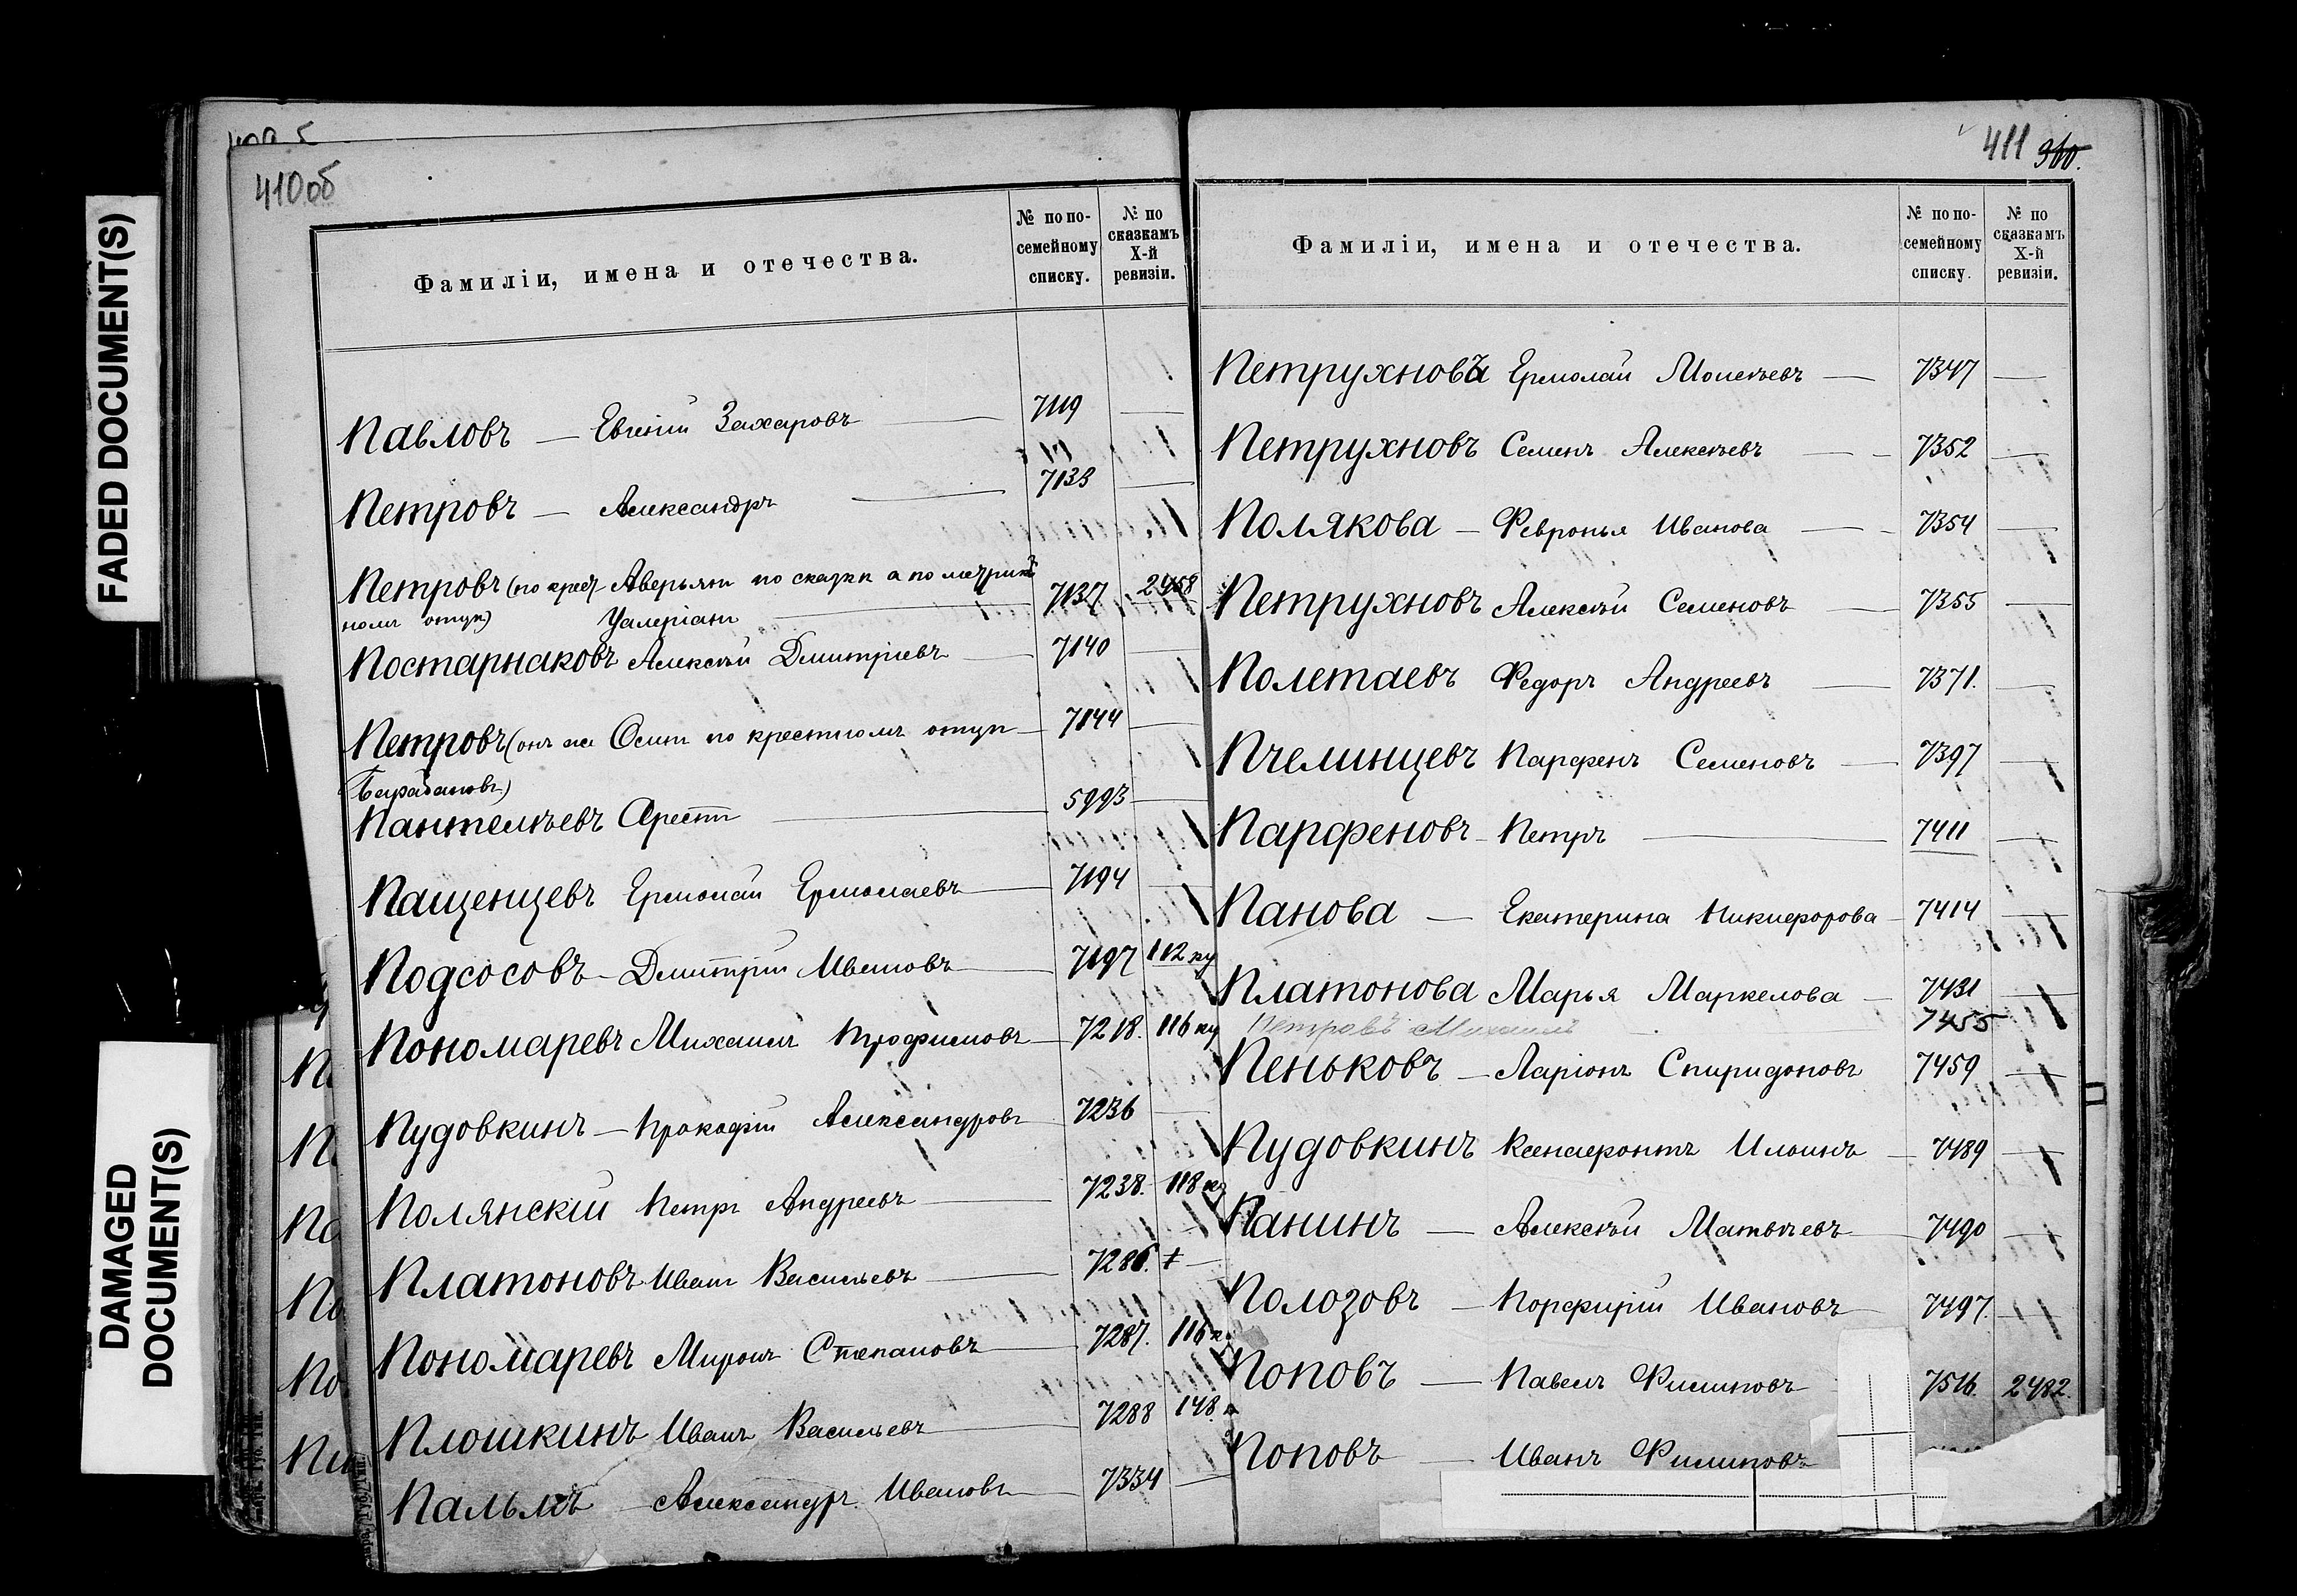 FADED DOCUMENT(S)
DAMAGED
DOCUMENT(S)
410об
Фамиліи, имена и отечества.
№ по по-
семейному
списку.
№ по
сказкамъ
X-й
ревизіи.
Павловъ — Евгеній Захаровъ — 7119 —
Петровъ — Александръ — 7133 —
Петровъ (по крест- Аверьянъ по сказкѣ а по метрикѣ 7137 2458
номъ отцу) Уалеріанъ
Постарнаковъ Алексѣй Дмитріевъ — 7140 —
Петровъ (онъ же Осипъ по крестномъ отцу — 7144 —
Барабановъ)
Пантелѣевъ Орестъ — 5993 —
Пащенцевъ Ермолай Ермолаевъ — 7194 —
Подсосовъ — Дмитрій Ивановъ — 7197 112 ку
Пономаревъ Михаилъ Трофимовъ — 7218. 116 ку
Пудовкинъ — Прокофій Александровъ 7236 —
Полянскій Петръ Андреевъ — 7238. 118 ку
Платоновъ Иванъ Васильевъ — 7286. + —
Пономаревъ Миронъ Степановъ — 7287. 116 к
Плошкинъ Иванъ Васильевъ — 7288 148.
Пальмъ — Александръ Ивановъ — 7334 —
411 360.
Фамиліи, имена и отечества.
№ по по-
семейному
списку.
№ по
сказкамъ
X-й
ревизіи.
Петрухновъ Ермолай Моисѣевъ — 7347 —
Петрухновъ Семенъ Алексѣевъ — 7352 —
Полякова — Февронья Иванова — 7354 —
Петрухновъ Алексѣй Семеновъ — 7355 —
Полетаевъ Федоръ Андреевъ — 7371. —
Пчелинцевъ Парфенъ Семеновъ — 7397 —
Парфеновъ — Петръ — 7411 —
Панова — Екатерина Никифорова — 7414 —
Платонова Марья Маркелова — 7431 —
Петровъ Михаилъ 7455
Пеньковъ — Ларіонъ Спиридоновъ 7459 —
Пудовкинъ Ксенофонтъ Ильинъ — 7489 —
Панинъ — Алексѣй Матвѣевъ — 7490 —
Полозовъ — Порфирій Ивановъ — 7497. —
Поповъ — Павелъ Филиповъ 7516. 2482.
Поповъ — Иванъ Филиповъ